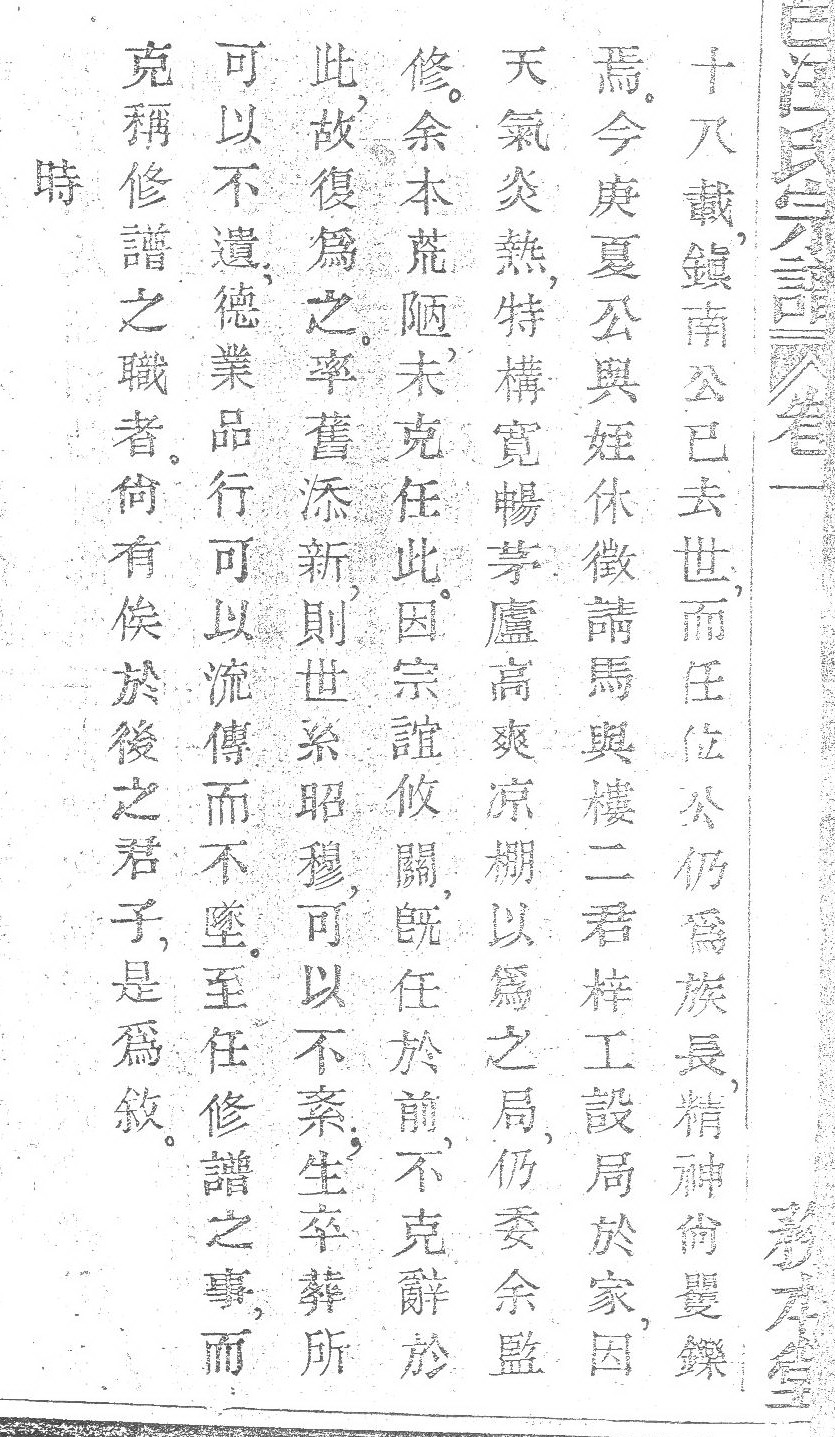 汪氏宗譜 卷一
十八載，鎮南公已去世，而任位公仍爲族長，精神尙矍鑠
焉。今庚夏公與姪休徵請馬與樓二君梓工設局於家，因
天氣炎熱，特構寬暢茅廬高爽凉棚以爲之局，仍委余監
修。余本荒陋，未克任此。因宗誼攸關，旣任於前，不克辭於
此，故復爲之。率舊添新，則世系昭穆，可以不紊；生卒葬所
可以不遺，德業品行可以流傳而不墜。至任修譜之事，而
克稱修譜之職者。尙有俟於後之君子，是爲敘。
時